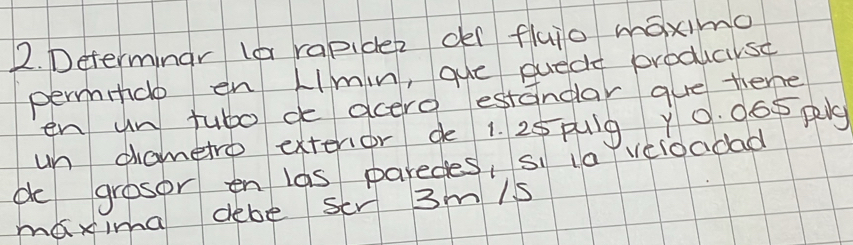 2. Determinar la rapidez del flujo máximo
permitido en L/min, que puede producirse
en un tubo de acero estándar que tiene
un diametro exterior de 1.25 pulg y 0.065 pulg
de grosor en las paredes, si la velocidad
máxima debe ser 3m/s